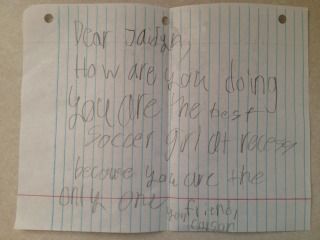 Dear Jaidyn,
How are you doing
you are the best
soccer girl at recess
because you are the
only one
your friend,
Carson